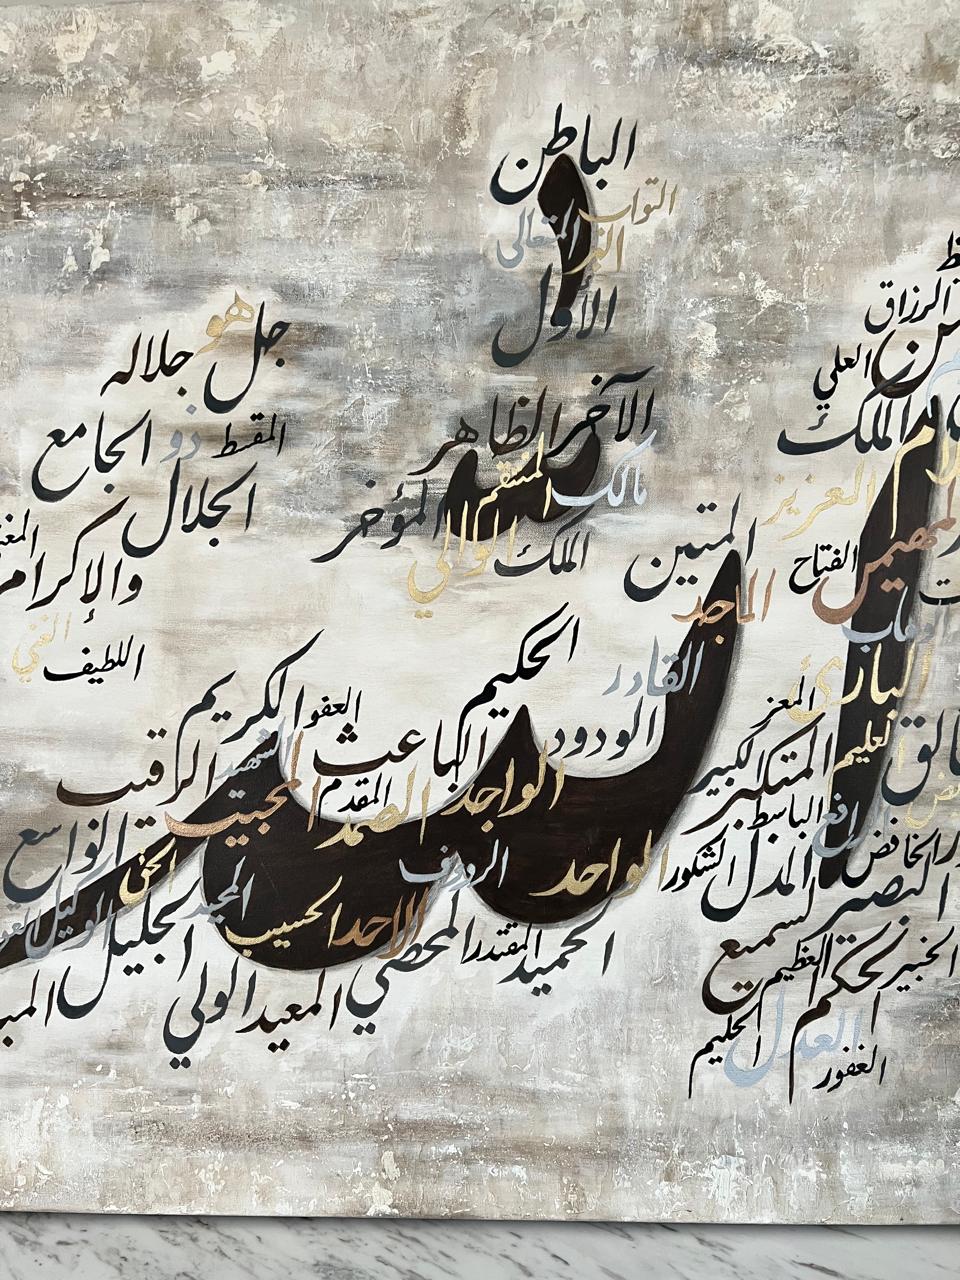 الباطن
التواب
المتعالى
الأول
الآخر الظاهر
مالك
المنتقم
المؤخر
الملك
الوالي
جل
هو
جلاله
المقسط
ذو
الجامع
الجلال
والإكرام
الغني
اللطيف
الرزاق
العلي
الملك
العزيز
المتين
الفتاح
المهيمن
الماجد
الوهاب
البارئ
القادر
الحكيم
الودود
المعز
العليم
المتكبر
الكبير
الباسط
الخافض
الشكور
المذل
البصير
السميع
العظيم
الخبير
الحكم
العدل
الحليم
الغفور
العفو
الكريم
الباعث
الشهيد
الرقيب
المجيب
المقدم
الصمد
الواجد
الواسع
الرؤوف
الواحد
المجيد
الوكيل
الحسيب
الاحد
الجليل
المحصي
المقتدر
الحميد
الولي
المعيد